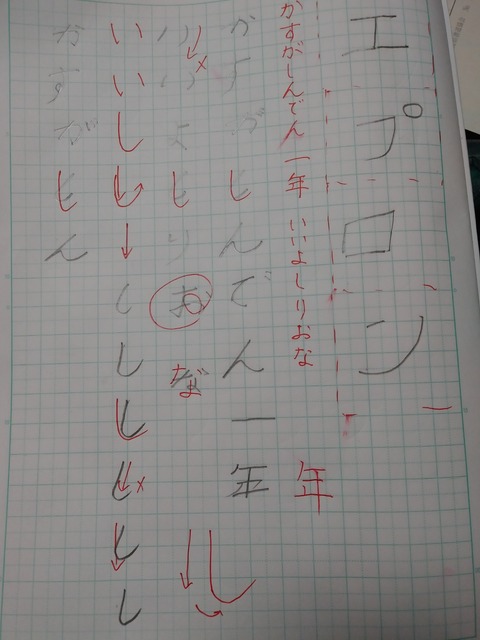 エプロン
かすがしんでん一年 いいよしりおな
年
かすがしんでん一年
いいよしりおな
いいししししししし
かすがしん